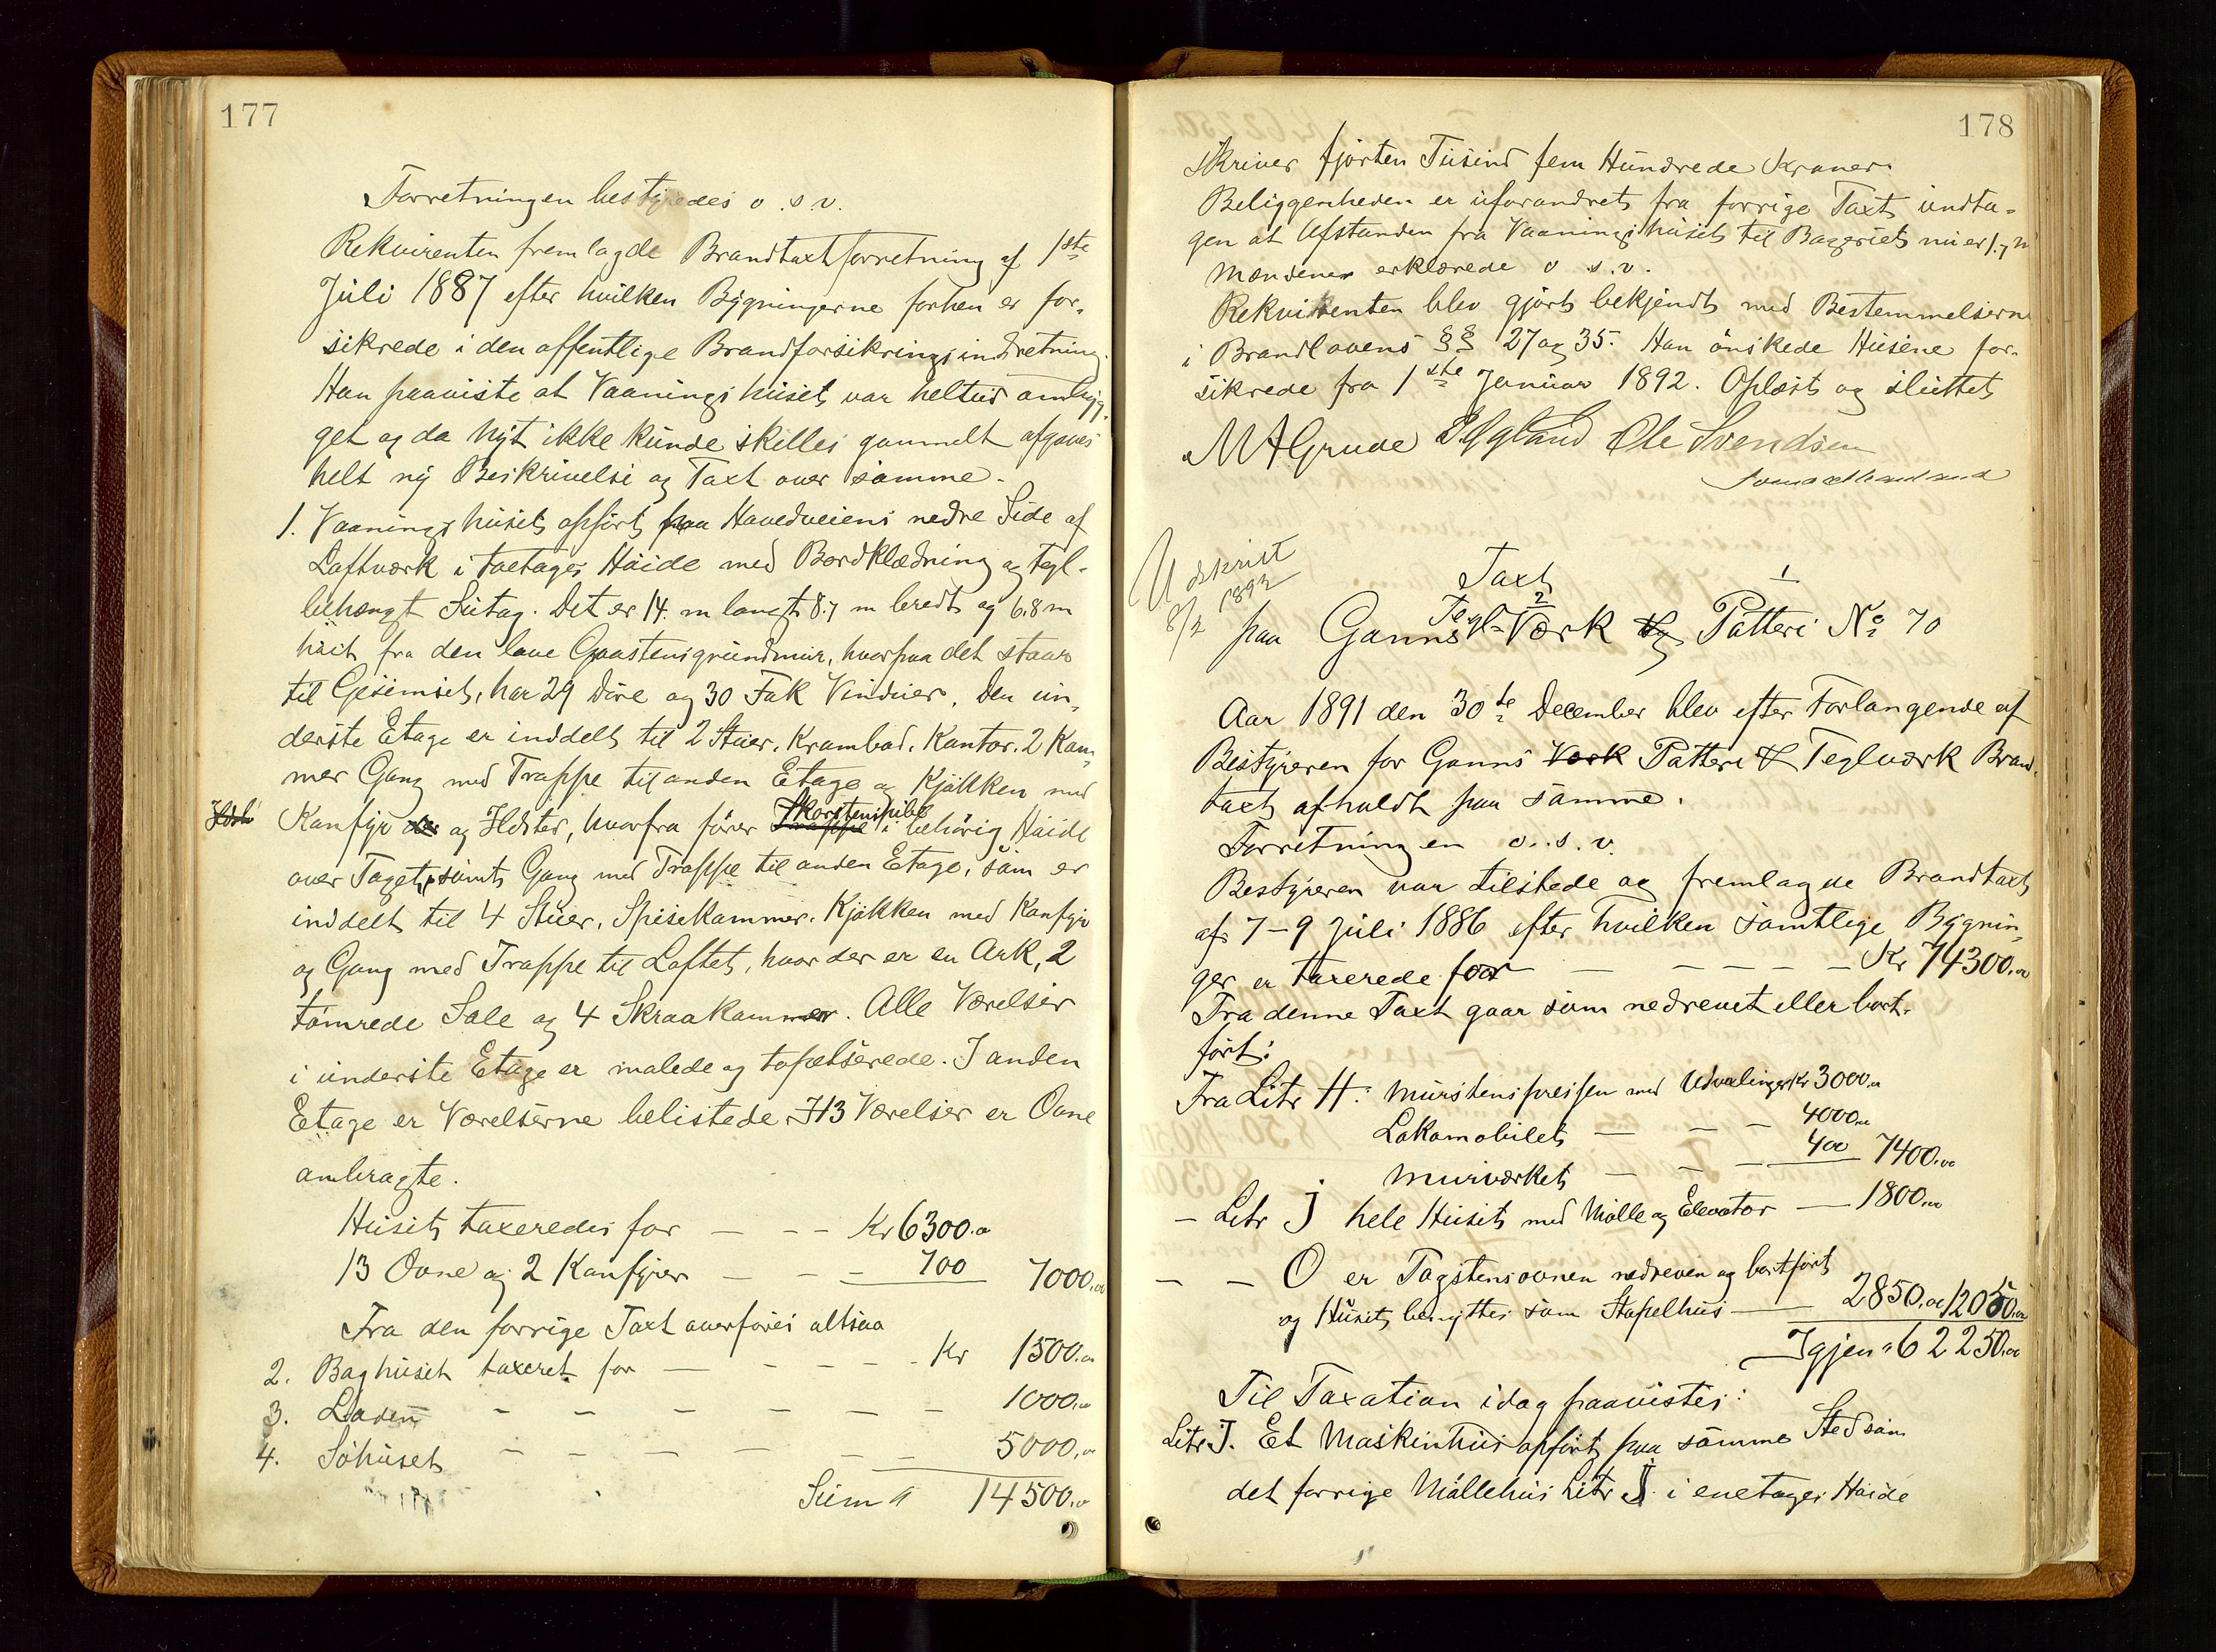 177
Forretningen bestyredes o.s.v.
Rekvirenten fremlagde Brandtaxtforretning af 1ste
Juli 1887 efter hvilken Bygningerne forhen er for-
sikrede i den offentlige Brandforsikringsindretning.
Han paaviste at Vaaningshuset var heltud ombyg-
get og da Nyt ikke kunde skilles gammelt afgaves
helt ny Beskrivelse og Taxt over samme.
1. Vaaningshuset opført paa Hovedveiens nedre Side af
Loftværk i toetages Høide med Bordklædning og Tegl-
behængt Sutag. Det er 14. m langt 8.7 m bredt og 6.8 m
høit fra den lave Graastensgrundmur, hvorpaa det staar
til Gesimset, har 29 Døre og 30 Fak Vinduer. Den un-
derste Etage er inddelt til 2 Stuer, Krambod, Kontor, 2 Kam-
mer Gang med Trappe til anden Etage og Kjøkken med
Komfyr og Ildsted, hvorfra fører Skorstenspibe i behørig Høide
over Taget, samt Gang med Trappe til anden Etage, som er
inddelt til 4 Stuer, Spisekammer, Kjøkken med Komfyr
og Gang med Trappe til Loftet, hvor der er en Ark, 2
tømrede Sale og 4 Skraakammer. Alle Værelser
i underste Etage er malede og tapetserede. I anden
Etage er Værelserne belistede. I 13 Værelser er Ovne
anbragte.
Huset taxeredes for — - - Kr 6300.00
13 Ovne og 2 Komfyrer — - - 700 7000.00
Fra den forrige Taxt overføres altsaa
2. Baghuset taxeret for — - - - - Kr 1500.00
3. Laden - - - - - - 1000.00
4. Søhuset - - - - - - 5000.00
Sum " 14500.00
178
skriver fjorten Tusind fem Hundrede Kroner.
Beliggenheden er uforandret fra forrige Taxt undta-
gen at Afstanden fra Vaaningshuset til Bageriet nu er 1.7 m
Mændene erklærede o.s.v.
Rekvirenten blev gjort bekjendt med Bestemmelserne
i Brandlovens §§ 27 og 35. Han ønskede Husene for-
sikrede fra 1ste Januar 1892. Oplæst og sluttet
M A Grude Ole Svendsen
Udskrift
8/2 1892
Taxt
paa Ganns Tegl-Værk og Potteri No 70
2 1
Aar 1891 den 30te December blev efter Forlangende af
Bestyreren for Ganns Værk Potteri & Teglværk Brand-
taxt afholdt paa samme.
Forretningen o.s.v.
Bestyreren var tilstede og fremlagde Brandtaxt
af 7-9 Juli 1886 efter hvilken samtlige Bygnin-
ger er taxerede for — - - - - Kr 74300.00
Fra denne Taxt gaar som nedrevet eller bort-
ført:
Fra Litr H: Murstenspressen med Udvexlinger Kr 3000.00
Lokomobilet — - - 4000.00
Murværket — - - 400 7400.00
- Litr J hele Huset med Mølle og Elevator — 1800.00
- - O er Tagstensovnen nedreven og bortført
og Huset benyttes som Stapelhus — 2850.00 12050.00
Igjen " 62250.00
Til Taxation idag paavistes:
Litr J. Et Maskinhus opført paa samme Sted som
det forrige Møllehus Litr J i enetages Høide